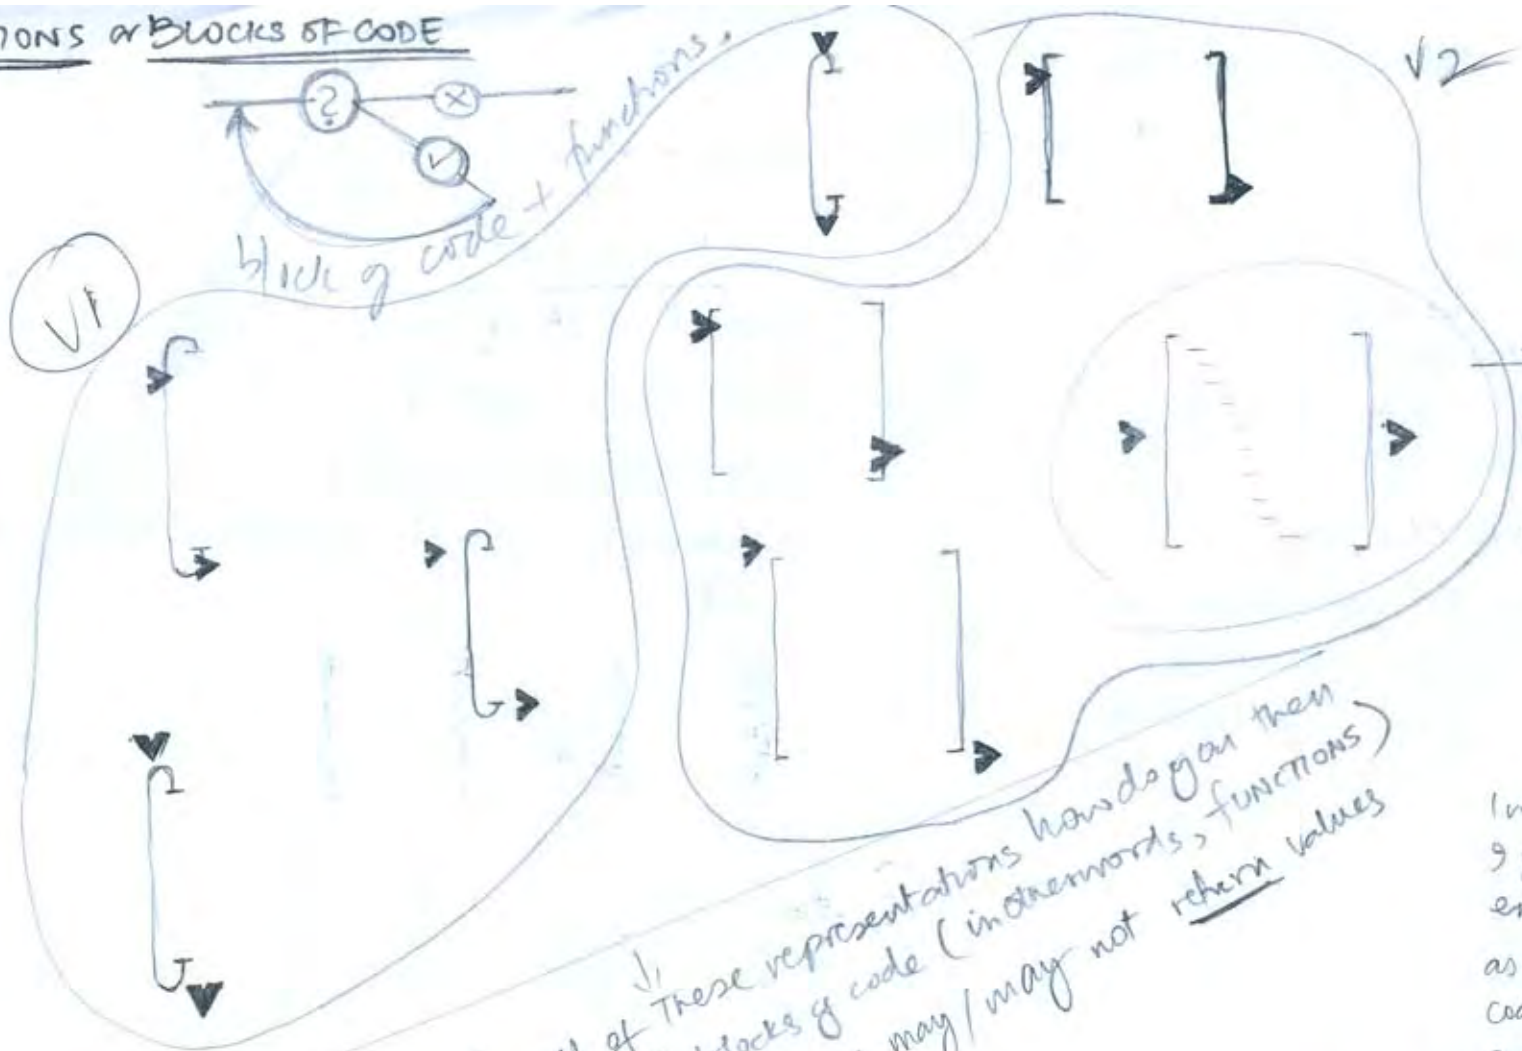 IONS or BLOCKS OF CODE
?
block of code + functions.
V1
V2
of These representations how do you then
blocks of code (in other words, FUNCTIONS)
may/may not return values
as